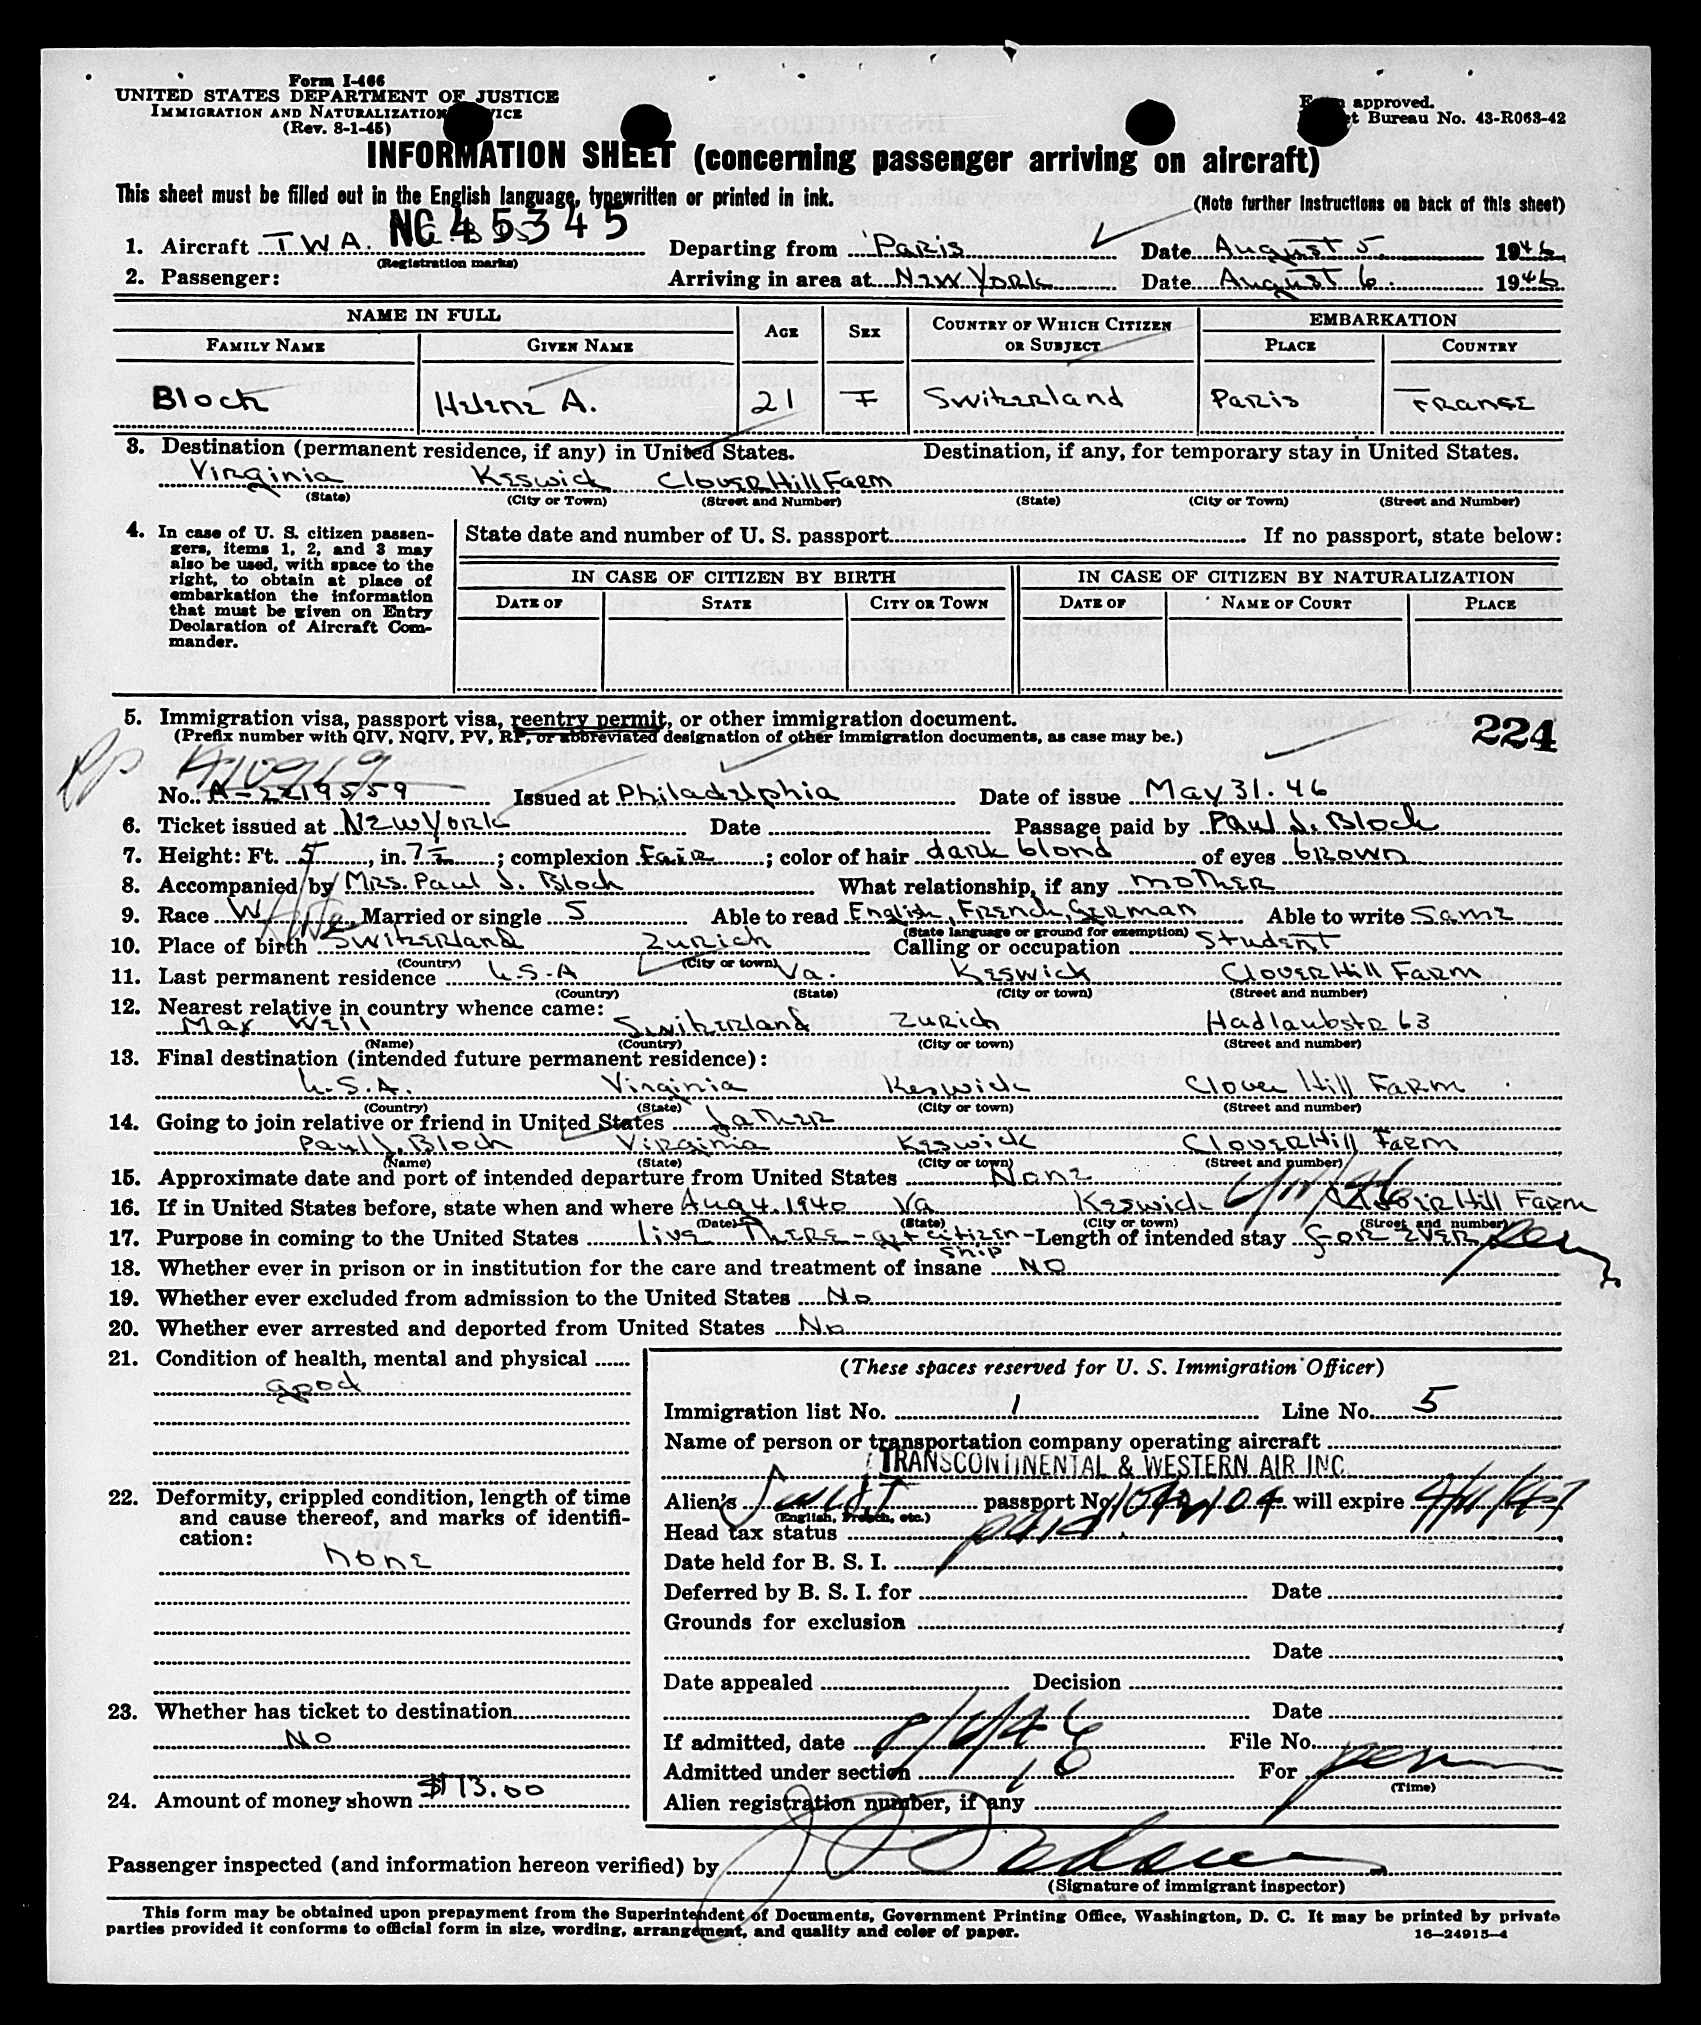 Form I-466
UNITED STATES DEPARTMENT OF JUSTICE
IMMIGRATION AND NATURALIZATION
(Rev. 8-1-45)
approved.
Bureau No. 43-R063-42
INFORMATION SHEET (concerning passenger arriving on aircraft)
This sheet must be filled out in the English language, typewritten or printed in ink.
(Note further instructions on back of this sheet)
1. Aircraft T.W.A. NC 45345 Departing from Paris Date August 5. 1946
(Registration marks)
2. Passenger: Arriving in area at New York Date August 6. 1946
NAME IN FULL AGE SEX COUNTRY OF WHICH CITIZEN OR SUBJECT EMBARKATION
FAMILY NAME GIVEN NAME PLACE COUNTRY
Bloch Helene A. 21 F Switzerland Paris France
3. Destination (permanent residence, if any) in United States. Destination, if any, for temporary stay in United States.
Virginia Keswick Clover Hill Farm
(State) (City or Town) (Street and Number) (State) (City or Town) (Street and Number)
4. In case of U. S. citizen passen-
gers, items 1, 2, and 3 may
also be used, with space to the
right, to obtain at place of
embarkation the information
that must be given on Entry
Declaration of Aircraft Com-
mander.
State date and number of U. S. passport If no passport, state below:
IN CASE OF CITIZEN BY BIRTH IN CASE OF CITIZEN BY NATURALIZATION
DATE OF STATE CITY OR TOWN DATE OF NAME OF COURT PLACE
5. Immigration visa, passport visa, reentry permit, or other immigration document.
(Prefix number with QIV, NQIV, PV, RP, or abbreviated designation of other immigration documents, as case may be.)
224
Rp
No. A-2219559 Issued at Philadelphia Date of issue May 31. 46
6. Ticket issued at New York Date Passage paid by Paul J. Bloch
7. Height: Ft. 5, in. 7½; complexion Fair; color of hair dark blond of eyes brown
8. Accompanied by Mrs. Paul J. Bloch What relationship, if any mother
9. Race W White Married or single S Able to read English, French, German Able to write Same
(State language or ground for exemption)
10. Place of birth Switzerland Zurich Calling or occupation Student
(Country) (City or town)
11. Last permanent residence U.S.A Va. Keswick Clover Hill Farm
(Country) (State) (City or town) (Street and number)
12. Nearest relative in country whence came:
Max Weil Switzerland Zurich Hadlaubstr 63
(Name) (Country) (City or town) (Street and number)
13. Final destination (intended future permanent residence):
U.S.A. Virginia Keswick Clover Hill Farm
(Country) (State) (City or town) (Street and number)
14. Going to join relative or friend in United States father
Paul J. Bloch Virginia Keswick Clover Hill Farm
(Name) (State) (City or town) (Street and number)
15. Approximate date and port of intended departure from United States None
16. If in United States before, state when and where Aug 4. 1940 Va Keswick Clover Hill Farm
(Date) (State) (City or town) (Street and number)
17. Purpose in coming to the United States live There - get citizen- Length of intended stay for ever
ship
18. Whether ever in prison or in institution for the care and treatment of insane NO
19. Whether ever excluded from admission to the United States No
20. Whether ever arrested and deported from United States No
21. Condition of health, mental and physical
good
22. Deformity, crippled condition, length of time
and cause thereof, and marks of identifi-
cation:
none
23. Whether has ticket to destination
No
24. Amount of money shown $173.00
(These spaces reserved for U. S. Immigration Officer)
Immigration list No. 1 Line No. 5
Name of person or transportation company operating aircraft
TRANSCONTINENTAL & WESTERN AIR INC.
Alien's passport No. will expire
(English, French, etc.)
Head tax status paid.
Date held for B. S. I.
Deferred by B. S. I. for Date
Grounds for exclusion
Date
Date appealed Decision
Date
If admitted, date 8/6/46 File No.
Admitted under section For perm
(Time)
Alien registration number, if any
Passenger inspected (and information hereon verified) by
(Signature of immigrant inspector)
This form may be obtained upon prepayment from the Superintendent of Documents, Government Printing Office, Washington, D. C. It may be printed by private
parties provided it conforms to official form in size, wording, arrangement, and quality and color of paper.
16—24915-4